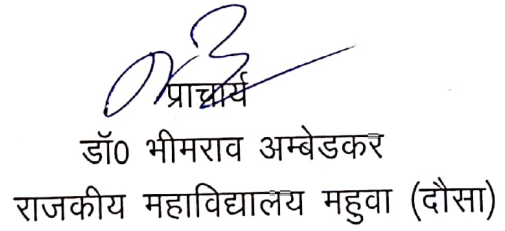 प्राचार्य
डॉ0 भीमराव अम्बेडकर
राजकीय महाविद्यालय महुवा (दौसा)